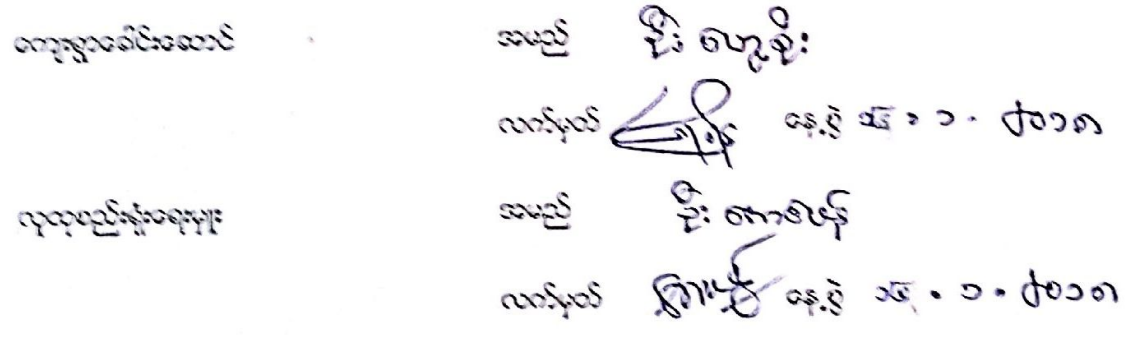 ကျေးရွာခေါင်းဆောင် အမည် ဦး လှစိုး
လက်မှတ် နေ့စွဲ ၁၄ . ၁ . ၂၀၁၈
လူထုစည်းရုံးရေးမှူး အမည် ဦး
လက်မှတ် နေ့စွဲ ၁၄ . ၁ . ၂၀၁၈